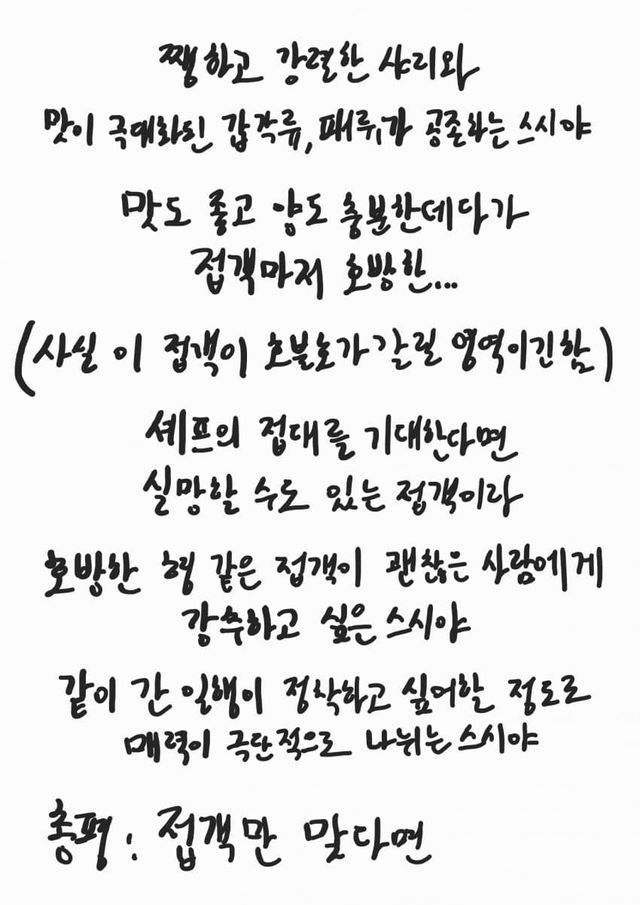 쨍하고 강렬한 샤리와
맛이 극대화된 갑각류, 패류가 공존하는 스시야
맛도 좋고 양도 충분한데다가
접객마저 호방한...
(사실 이 접객이 호불호가 갈릴 영역이긴함)
셰프의 접대를 기대한다면
실망할 수도 있는 접객이라
호방한 형 같은 접객이 괜찮은 사람에게
강추하고 싶은 스시야
같이 간 일행이 정착하고 싶어할 정도로
매력이 극단적으로 나뉘는 스시야
총평 : 접객만 맞다면